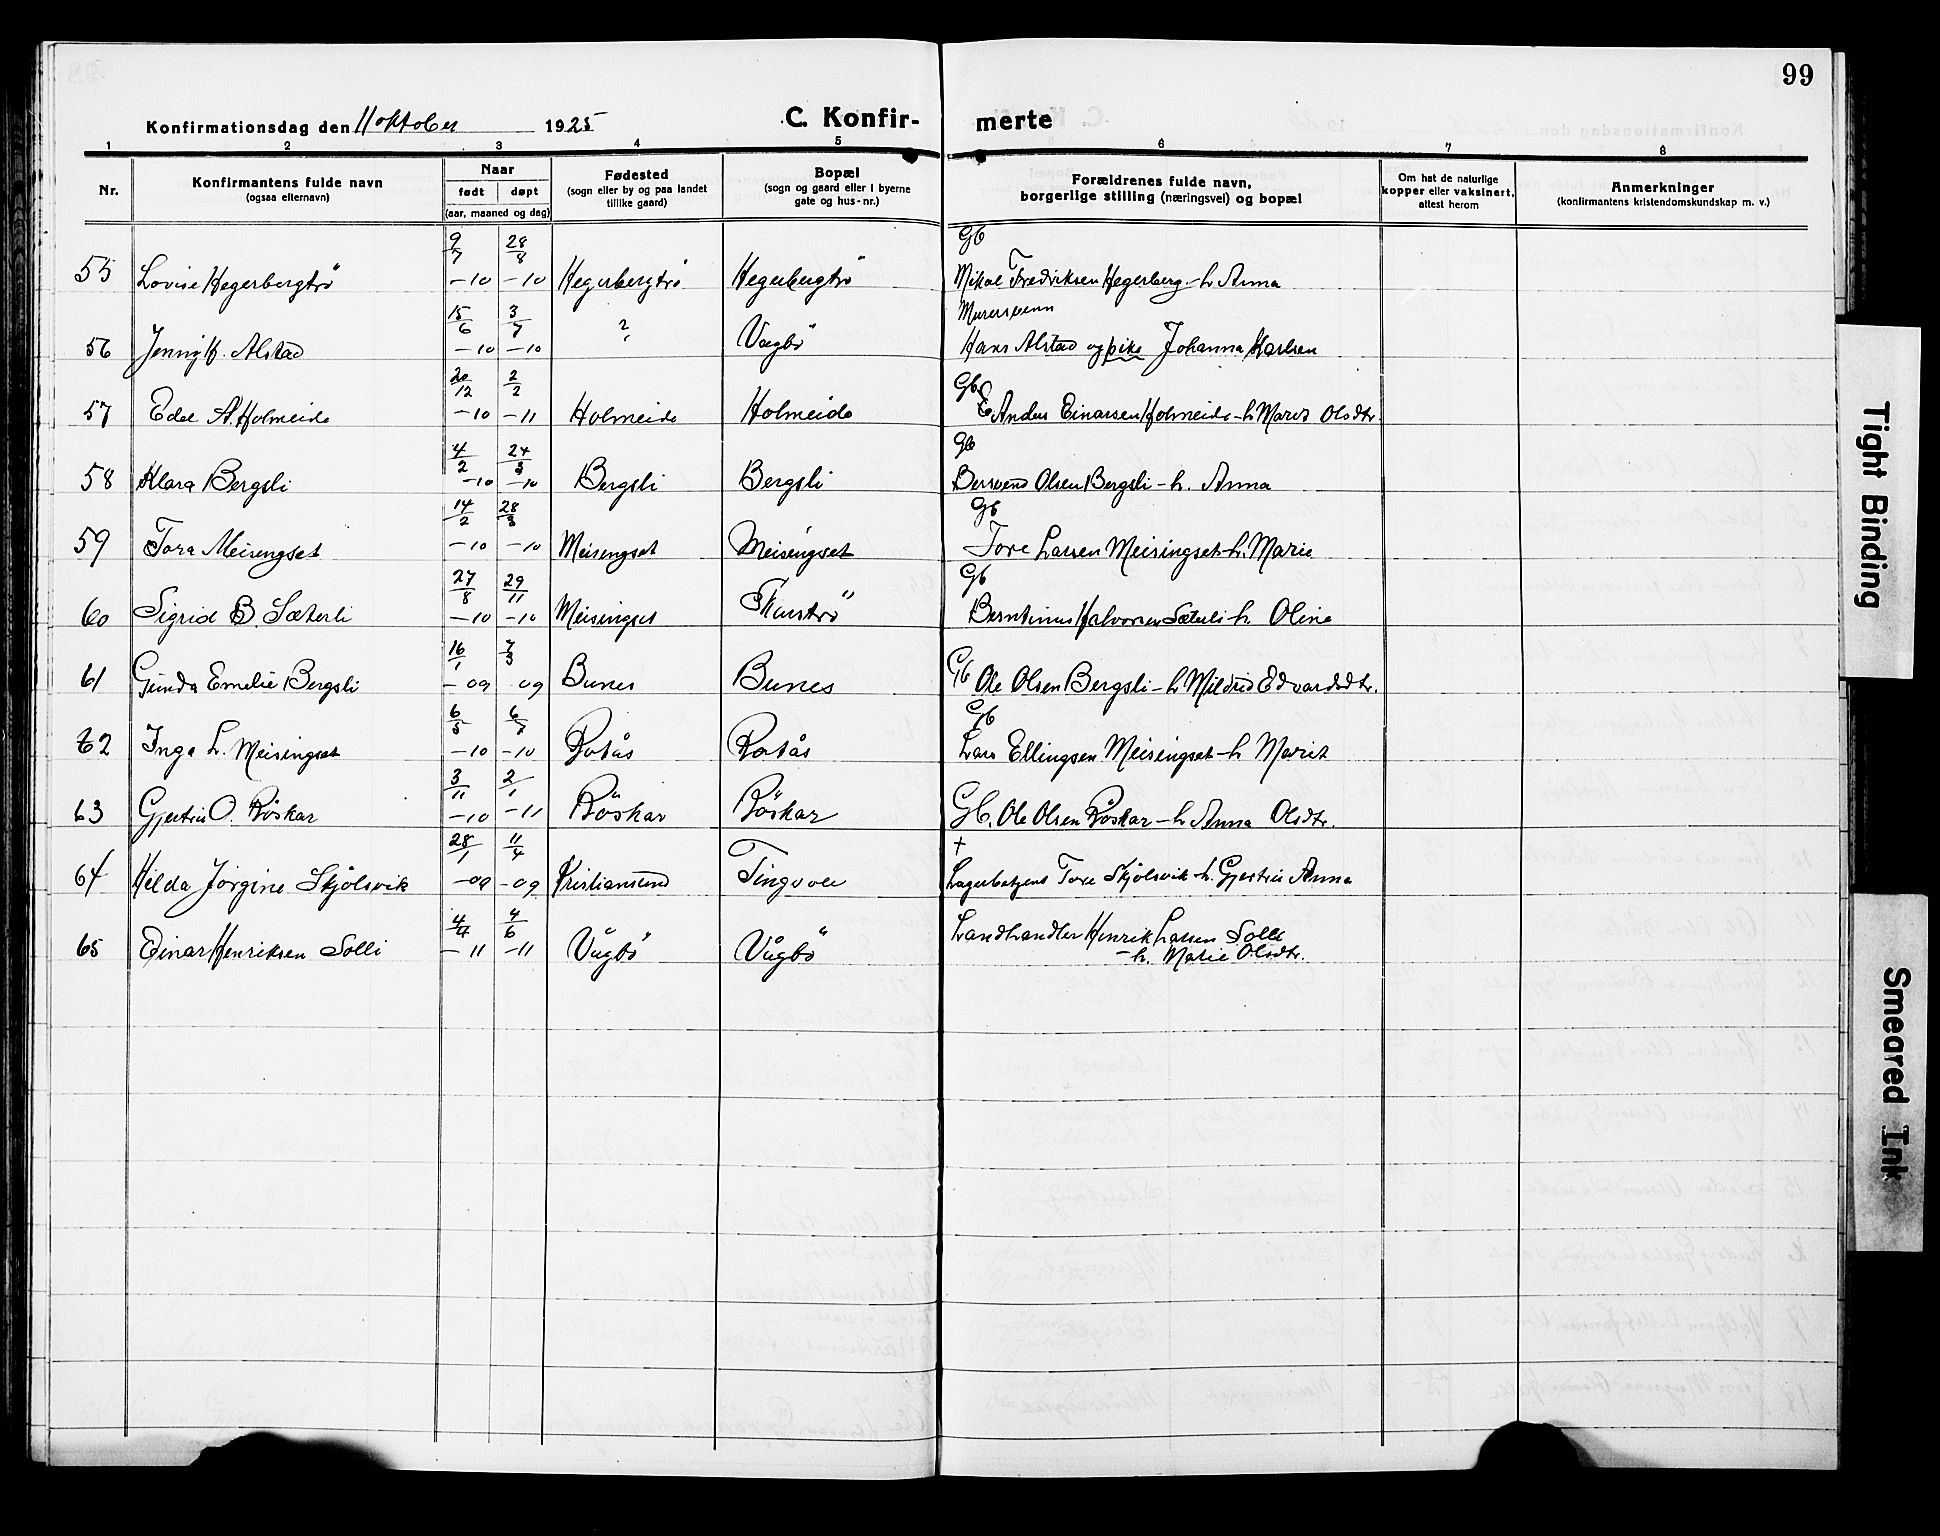 99
Konfirmationsdag den 11 oktober 1925 C. Konfir- merte
1 2 3 4 5 6 7 8
Nr. Konfirmantens fulde navn (ogsaa efternavn) Naar født døpt (aar, maaned og dag) Fødested (sogn eller by og paa landet tillike gaard) Bopæl (sogn og gaard eller i byerne gate og hus-nr.) Forældrenes fulde navn, borgerlige stilling (næringsvei) og bopæl Om hat de naturlige kopper eller vaksinert, attest herom Anmerkninger (konfirmantens kristendomskundskap m. v.)
9/7 28/8 Gb
55 Lovise Hegerbergtrö -10 -10 Hegerbergtrö Hegerbergtrö Mikal Fredriksen Hegerberg - h Anna
15/6 3/7 Murersvenn
56 Jenny H. Alstad -10 -10 ? Vagbö Hans Alstad og pike Johanna Karlsen
20/12 2/2 Gb
57 Edel A. Holmeide -10 -11 Holmeide Holmeide E Anders Einarsen Holmeide - h Marit Olsdtr.
4/2 24/3 Gb
58 Klara Bergsli -10 -10 Bergsli Bergsli Bersvend Olsen Bergsli - h. Anna
14/2 28/3 Gb
59 Tora Meisingset -10 -10 Meisingset Meisingset Tore Larsen Meisingset - h. Marie
27/8 29/11 Gb
60 Sigrid B. Sæterli -10 -10 Meisingset Skarströ Berntinus Halvorsen Sæterli - h. Oline
16/1 7/3
61 Gunda Emelie Bergsli -09 09 Bunes Bunes Gb Ole Olsen Bergsli - h Mildrid Edvardsdtr.
6/5 6/7 Gb
62 Inga L. Meisingset -10 -10 Rotås Rotås Lars Ellingsen Meisingset - h Marit
3/11 2/1
63 Gjertrú O. Röskar -10 -11 Röskar Röskar Gb. Ole Olsen Röskar - h Anna Olsdtr.
28/1 11/4 †
64 Hilda Jörgine Skjölsvik -09 -09 Kristiansund Tingvoll Lagerbetjent Tore Skjölsvik - h. Gjertrú Anna
4/4 4/6
65 Einar Henriksen Solli -11 -11 Vågbö Vågbö Landhandler Henrik Larsen Solli
- h. Marie Olsdtr.
Tight Binding
Smeared Ink